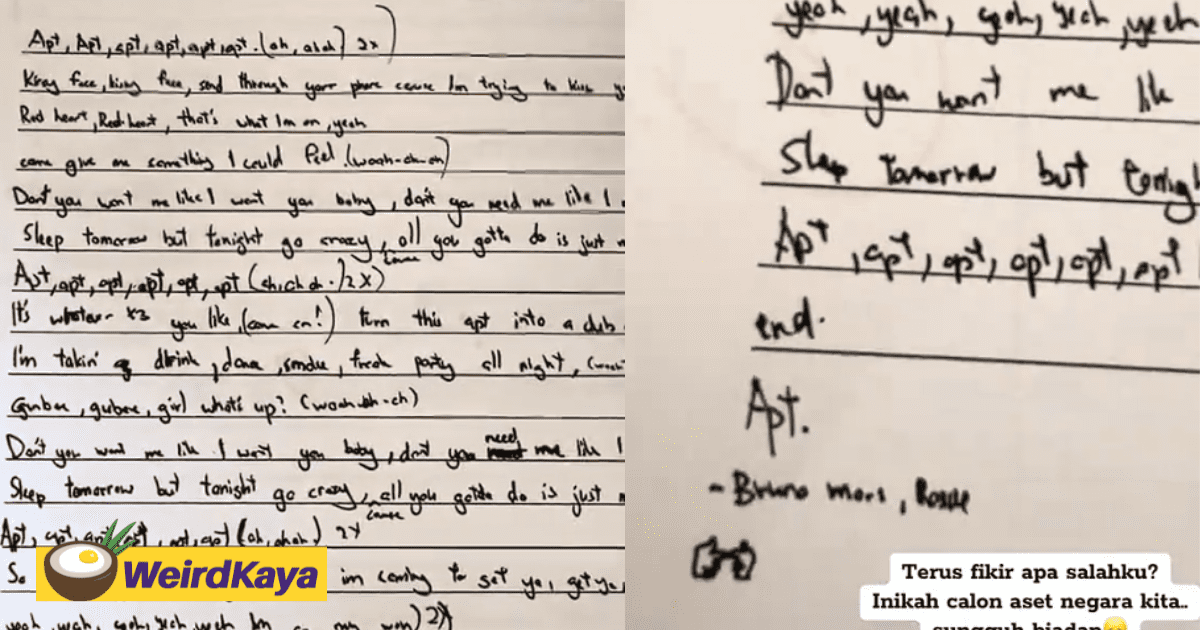 Apt, Apt, apt, apt, apt, apt. (ah, ahah) 2x)
Kissy face, kissy face, send through your phone cause Im trying to kiss
Red heart, Red heart, that's what Im on, yeah
come give me something I could Feel. (woah-oh-oh)
Dont you want me like I want you baby, don't you need me like I
Sleep tomorrow but tonight go crazy, all you gotta do is just
cause
Apt, apt, apt, apt, apt, apt (ah, ah ah. / 2X)
It's whatever x3 you like, (come on!) turn this apt into a club
I'm takin' drink, dance, smoke, freak party all night, (woah
Gunbae, gunbae, girl what's up? (woah-oh-oh)
Don't you want me like I want you baby, don't you need me like I
Sleep tomorrow but tonight go crazy, all you gotta do is just
cause
Apt, apt, apt, apt, apt, apt (ah, ahah) 2x
So im coming to get ya, get ya,
yeah, yeah, yeah, yeah, yeah Im on my way) 2X
WeirdKaya
yeah, yeah, yeah, yeah, yeah
Don't you want me like
Sleep tomorrow but tonigh
Apt, apt, apt, apt, apt, apt
end.
Apt.
- Bruno mars, Rosae
Terus fikir apa salahku?
Inikah calon aset negara kita..
sungguh biadap